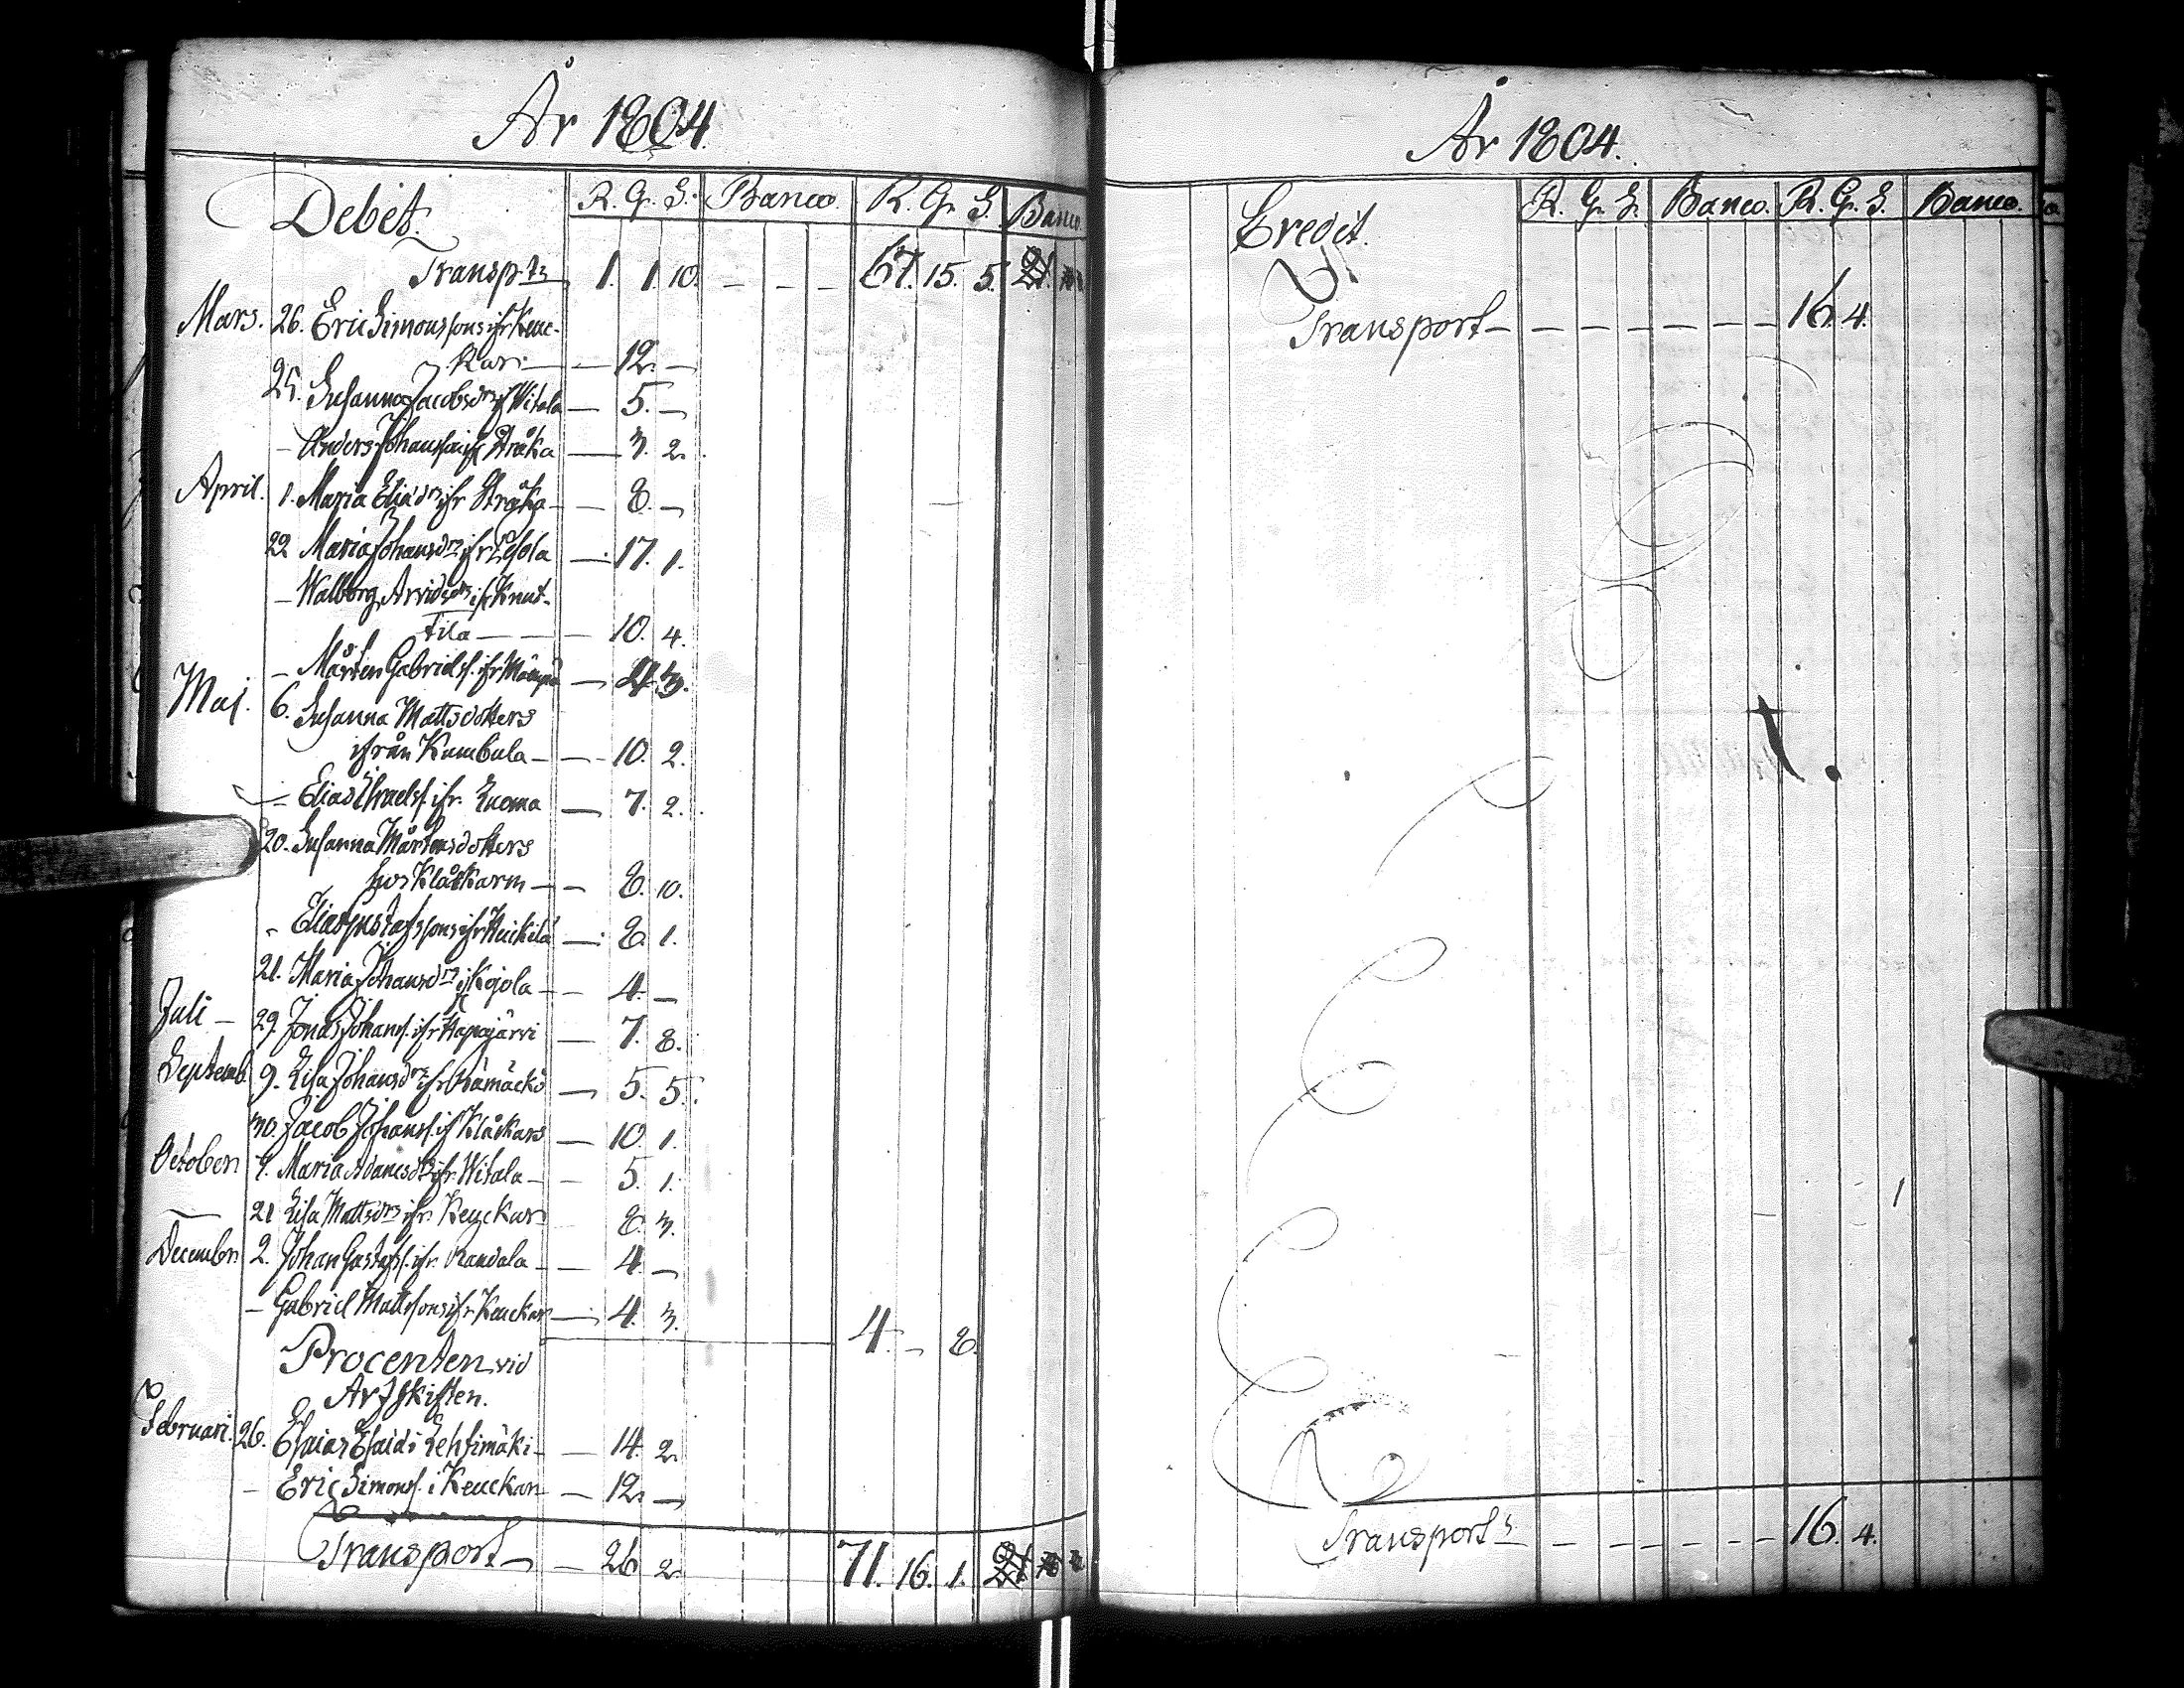 År 1804.
Debet. R. Gr. S. Banco. R. Gr. S. Banco.
Transpt 1. 1. 10. — — — 67. 15. 5.
Mars. 26. Eric Simonssons ifr Keuc-
kari — — 12. —
25. Susanna Jacobsdrs if Witala — 5. —
— Anders Johanss if Stråka — 3. 2.
April. 1. Maria Eliædrs ifr Stråka — — 8. —
22 Maria Johansdrs ifr — 17. 1.
— Walborg Arvidsdrs if Knut-
tila — — — 10. 4.
— Mårten Gabrielss. ifr — 4. 3.
Maj. 6. Susanna Mattsdotters
ifrån Kambala — — 10. 2.
— Elias Israelss. ifr. Luoma — 7. 2.
20. Susanna Mårtensdotters
hos Klåckarn — — 8. 10.
— Elias Gustafssons ifr Heickilä — 8. 1.
21. Maria Johansdrs if Kojola — — 4. —
Juli — 29. Jonas Johanss. ifr Hapajärvi — 7. 8.
Septemb. 9. Lisa Johansdrs ifr Rämäckö — 5. 5.
30. Jacob Johanss. if Klåckars — 10. 1.
October 7. Maria Adamsdrs ifr. Witala — — 5. 1.
— 21 Lisa Mattsdrs ifr. Keuckari 8. 3.
Decembr. 2. Johan Gustafss. ifr. Randala — — 4. —
— Gabriel Mattssons ifr Keuckari — 4. 3. 4. — 8.
Procenten vid
Arfskiften.
Februari. 26. Esaias Esaiæ i Lehtimäki — — 14. 2.
— Eric Simonss. i Keuckari — 12. —
Transport — — 26. 2. 71. 16. 1.
År 1804.
Credit. R. Gr. S. Banco. R. Gr. S. Banco.
Transport — — — — — — — 16. 4.
t.
Transport — — — — — — 16. 4.